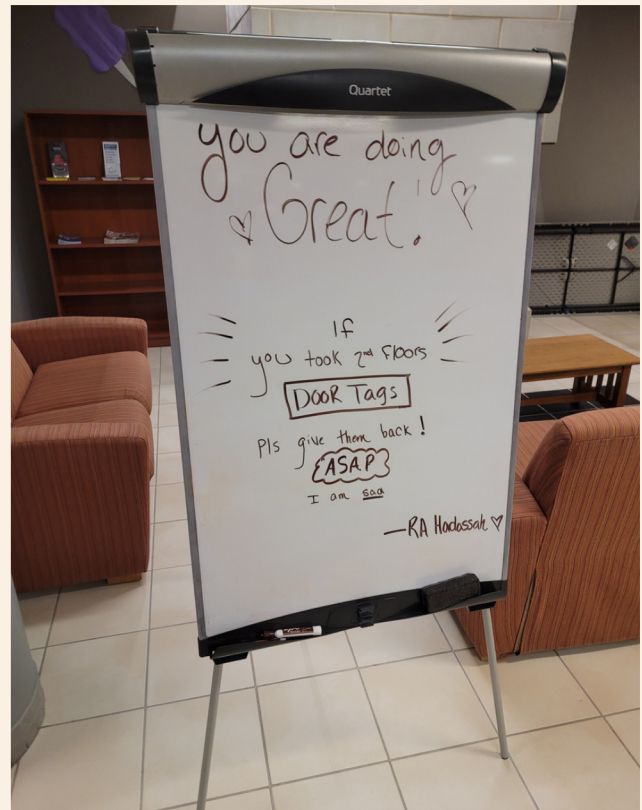 Quartet
you are doing
Great!
If
you took 2nd Floors
DOOR Tags
Pls give them back!
ASAP
I am sad
—RA Hadossah